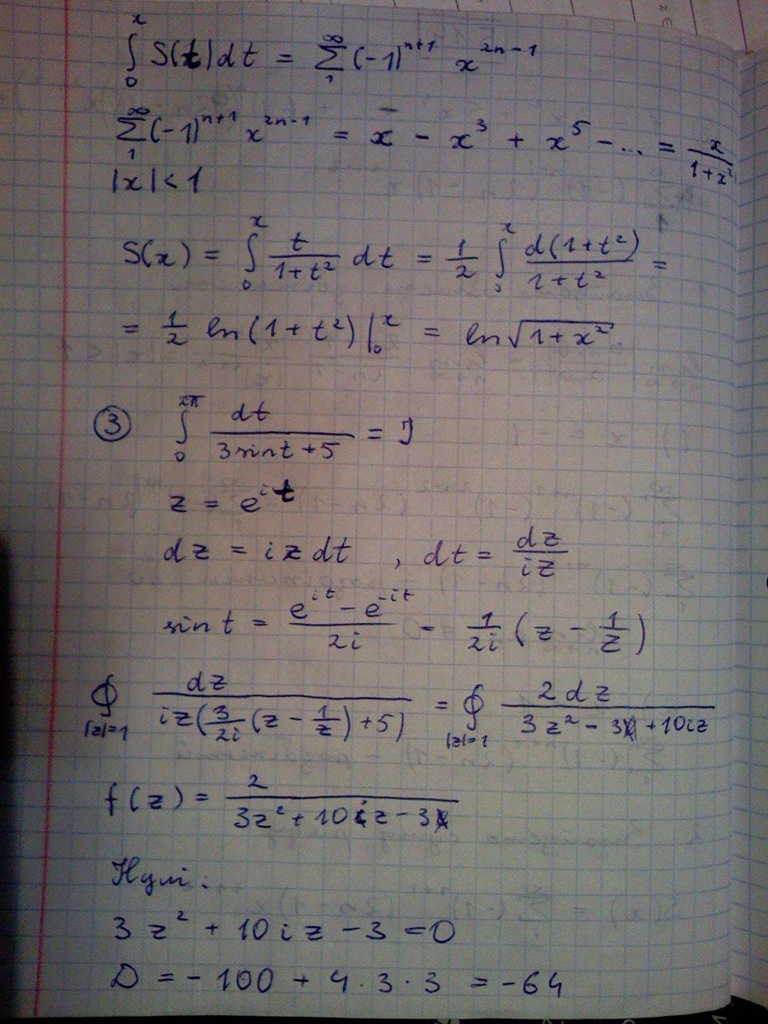 ∫₀ˣ S(t)dt = Σ₁^∞ (-1)ⁿ⁺¹ x²ⁿ⁻¹
Σ₁^∞ (-1)ⁿ⁺¹ x²ⁿ⁻¹ = x - x³ + x⁵ - ... = x/(1+x²)
|x|<1
S(x) = ∫₀ˣ t/(1+t²) dt = 1/2 ∫₀ˣ d(1+t²)/(1+t²) =
= 1/2 ln(1+t²)|₀ˣ = ln√(1+x²).
③ ∫₀^2π dt/(3sint+5) = I
z = e^(it)
dz = izdt , dt = dz/(iz)
sin t = (e^(it) - e^(-it))/(2i) = 1/(2i) (z - 1/z)
∮_|z|=1 dz/(iz(3/(2i)(z - 1/z)+5)) = ∮_|z|=1 2dz/(3z² - 3 + 10iz)
f(z) = 2/(3z² + 10iz - 3)
Нулі:
3z² + 10iz - 3 = 0
D = -100 + 4·3·3 = -64